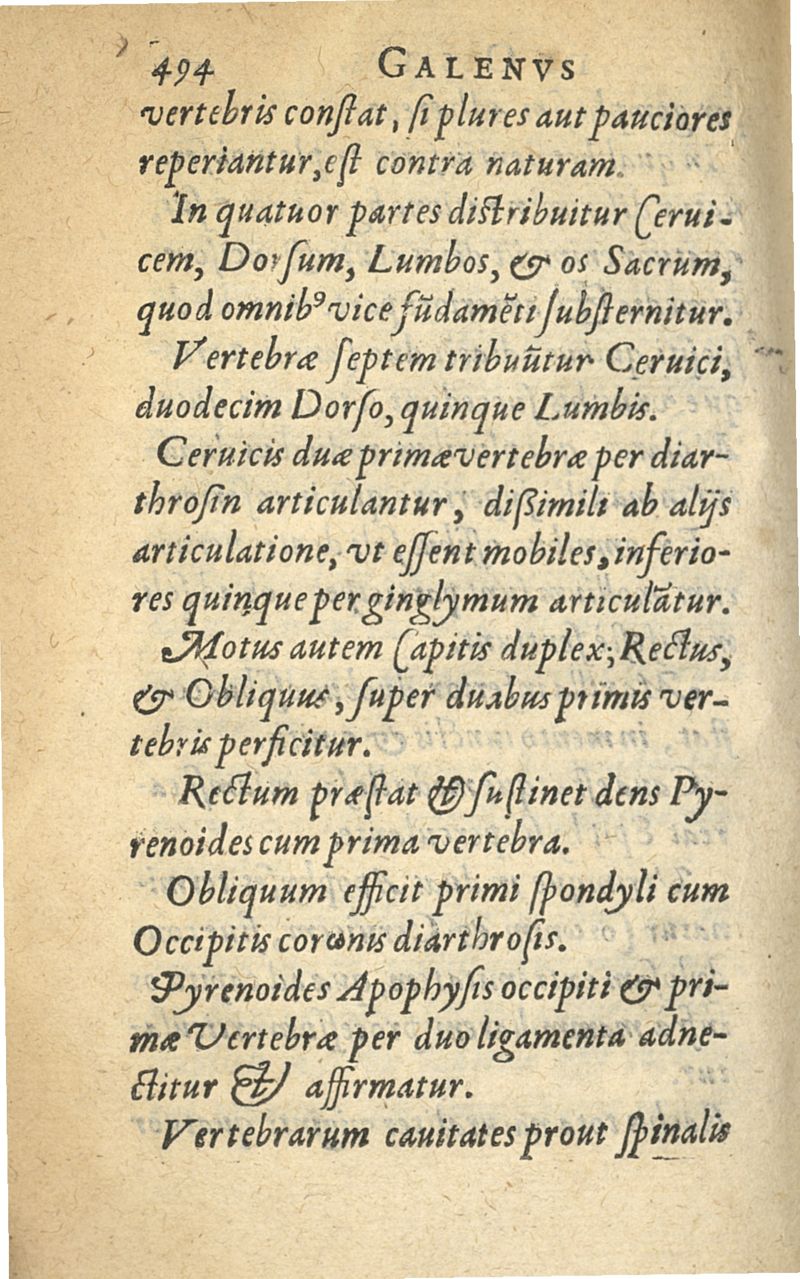 494 GALENVS
vertebris conſtat, ſi plures aut pauciores
reperiantur, eſt contra naturam.
In quatuor partes diſtribuitur Cerui-
cem, Dorſum, Lumbos, & os Sacrum,
quod omnibꝰ vice fũdamẽti ſubſternitur.
Vertebræ ſeptem tribuũtur Ceruici,
duodecim Dorſo, quinque Lumbis.
Ceruicis duæ primæ vertebræ per diar-
throſin articulantur, dißimili ab alijs
articulatione, vt eſſent mobiles, inferio-
res quinque per ginglymum articulãtur.
Motus autem Capitis duplex; Rectus,
& Obliquus, ſuper duabus primis ver-
tebris perficitur.
Rectum præſtat & ſuſtinet dens Py-
renoides cum prima vertebra.
Obliquum efficit primi ſpondyli cum
Occipitis coronis diarthroſis.
Pyrenoides Apophyſis occipiti & pri-
mæ Vertebræ per duo ligamenta adne-
ctitur & affirmatur.
Vertebrarum cauitates prout ſpinalis